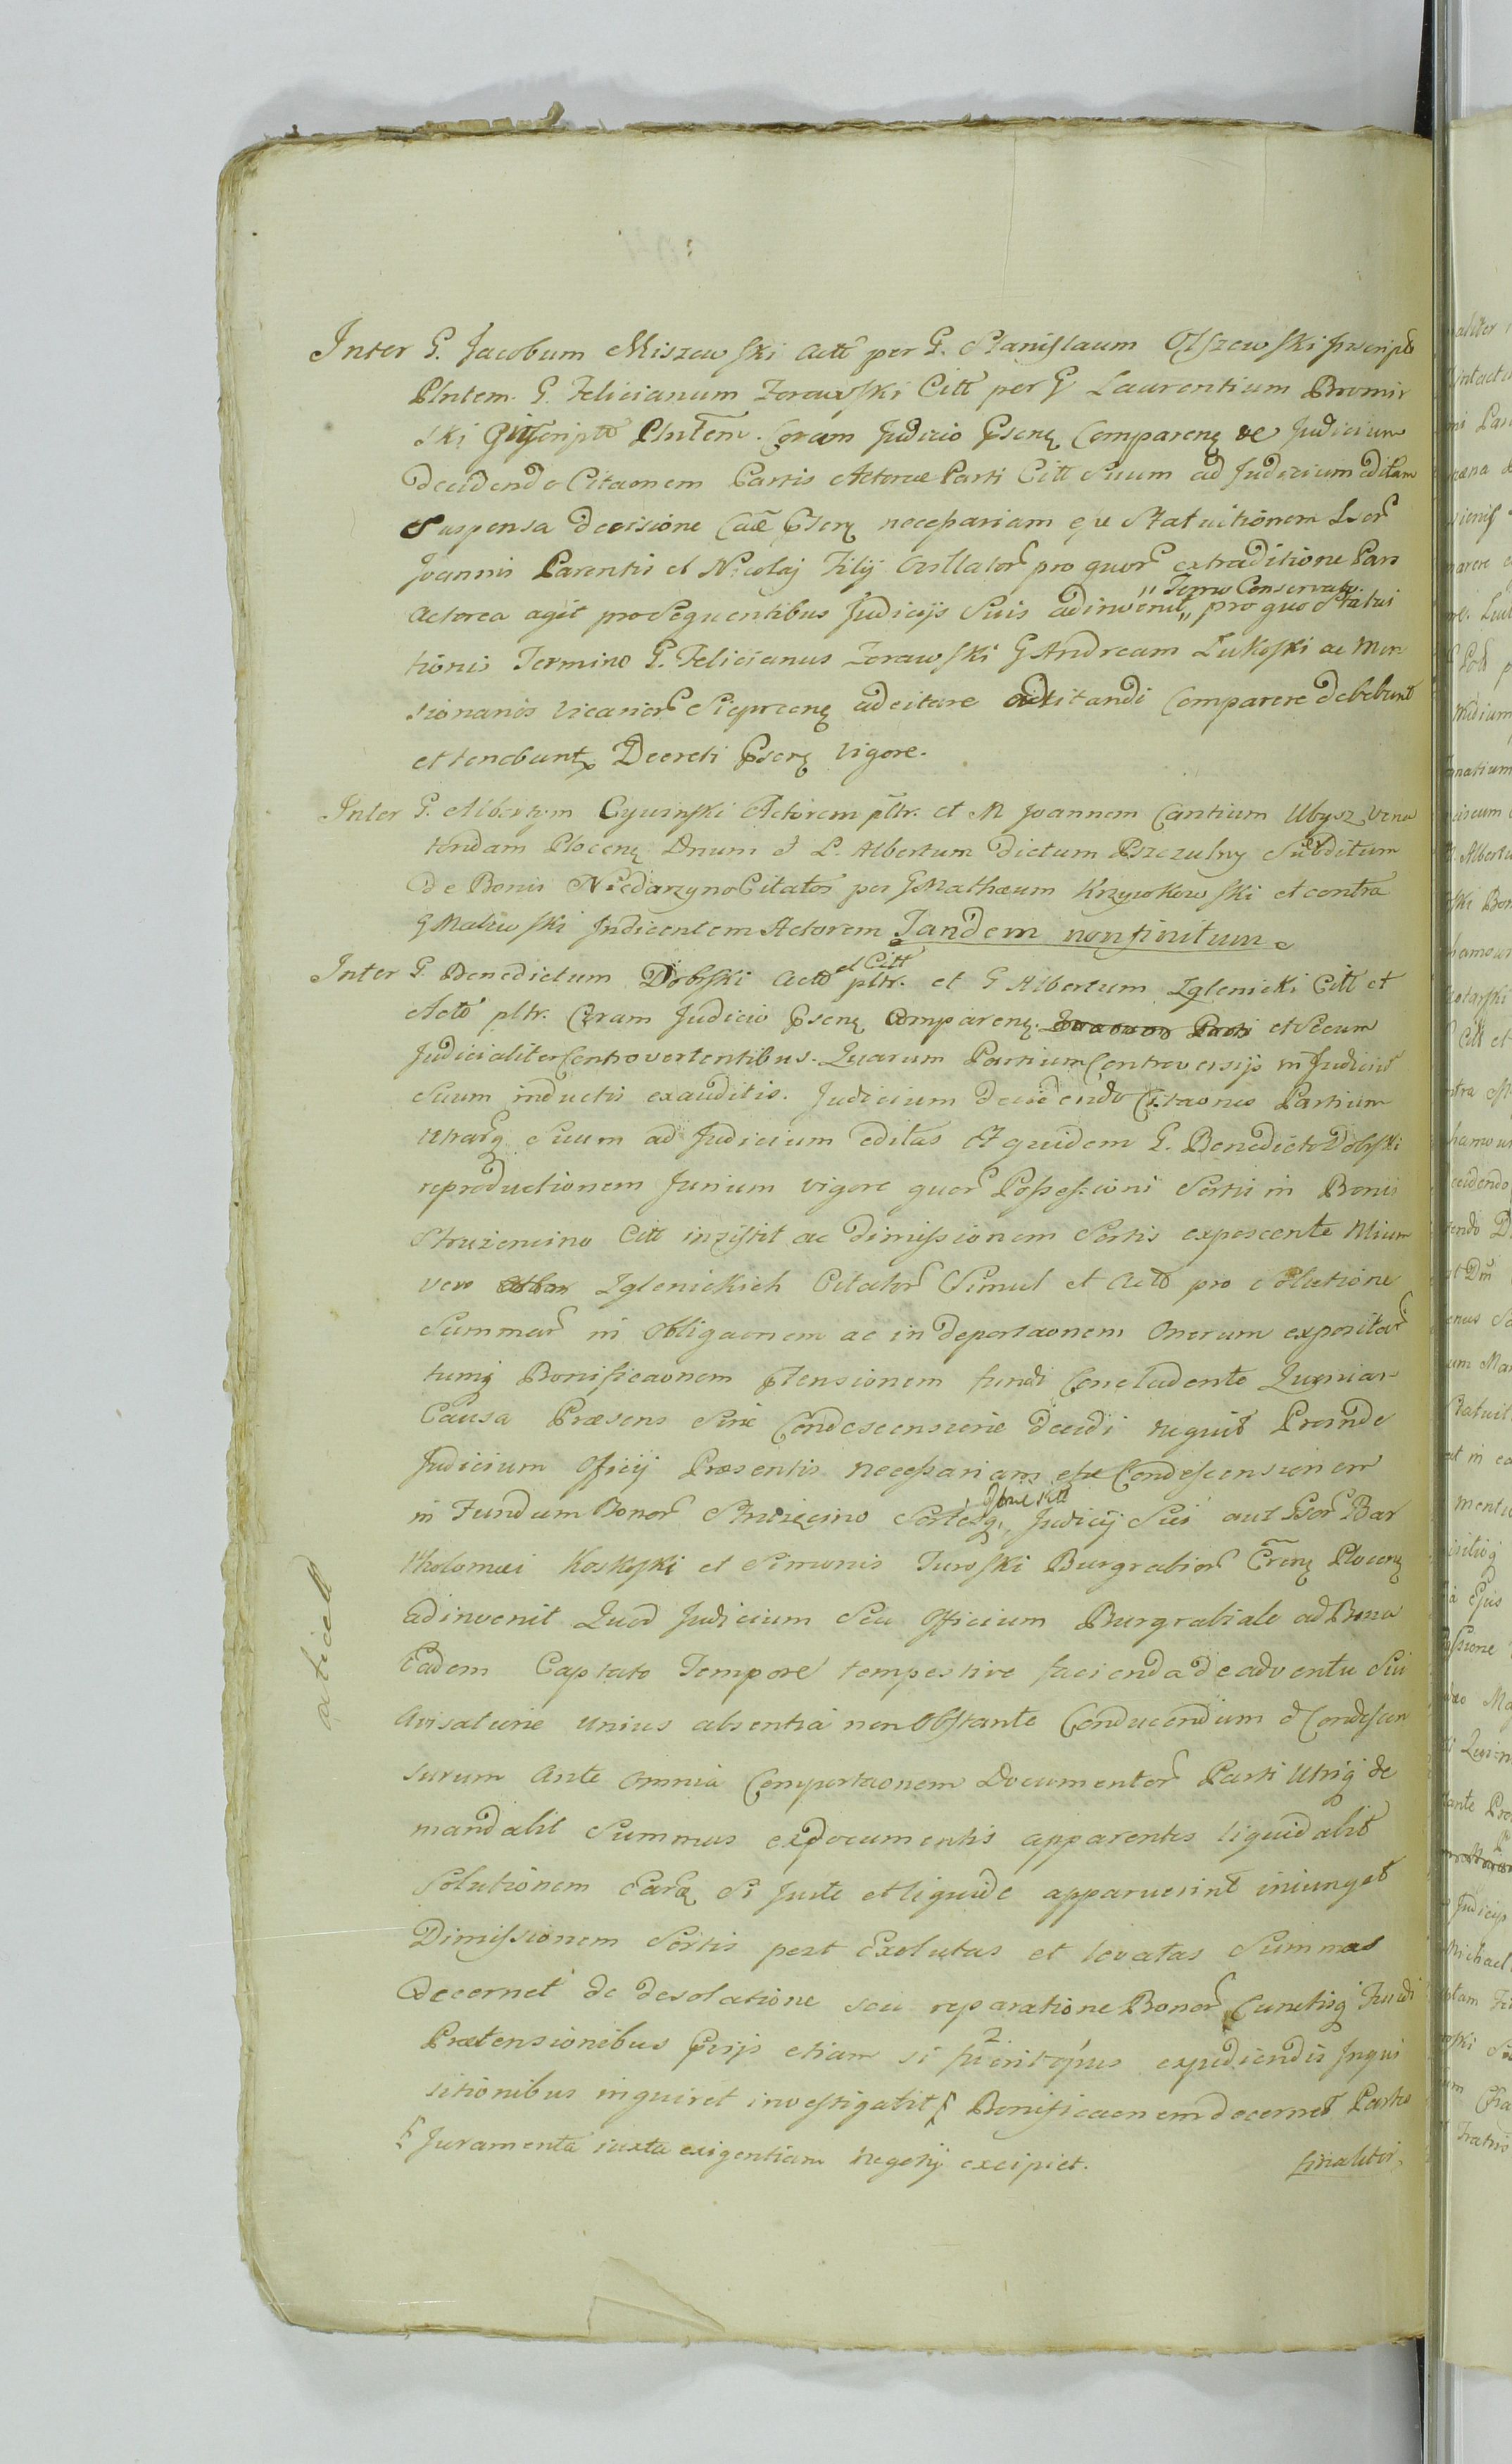 Inter G. Jacobum Miszewski Actt per G. Stanislaum Olszewski
Plntem. G. Felicianum Zorawski Citt per G Laurentium Bromir
ski Plntem. Coram Judicio Psenq Comparenq Judicium
decidendo Citaonem Partis Actoreae Parti Citt Suum ad Judicium editam
Suspensa decisione Cae Psenq necessariam esse Statuitionem
Joannis Parentis et Nicolaj Filij pro quor extraditione Pars
Actorea agit pro Sequentibus Judicijs Suis adinvenit,, pro quo Statui
,, Termo Conservato
tionis Termino G. Felicianus Zorawski G Andream Lukoski ac Man
sionarios Vicarior Sieprcenq adcitare adcitandi Comparere debebunt
et tenebuntr Decreti Psenq vigore.
Inter G. Albertum Cywinski Actorem pltr. et M Joannem Cantium Ubysz Vena
tondam Plocenq Dnum et L. Albertum dictum Pszczulny Subditum
de Bonis Niedarzyno Citatos per G Mathaeum Krzywkowski et contra
G Malewski Judicentem Actorem Tandem non finitum
Inter G. Benedictum Dobski Actt pltr. et G Albertum Zglenicki Citt et
et Citt
Actt pltr. Coram Judicio Psenq Comparenq et Secum
Judicialiter Controvertentibus. Quarum Partium Controversijs in Judiciu
Suum inductis exauditis. Judicium decidendo Citaones Partium
Utrarq Suum ad Judicium editas Et quidem G. Benedicto Dobski
reproductionem Jurium vigore quor Possessioni Sortis in Bonis
Struzencino Citt insistit ac dimissionem Sortis exposcente
vero Zglenickich Citator Simul et Actt pro Solutione
Summar in Obligaonem ac in deportaonem Onerum expositar
tumq Bonificaonem Ptensionem fundi Concludente Quoniam
Causa Praesens Sine Condescensione decidi nequit Proinde
Judicium Officij Praesentis necessariam esse Condescensionem
in Fundum Bonor Struzęcino Sortesq,, Judicij Sui aut Gor Bar
tholomaei Koskoski et Simonis Turoski Burgrabior Plocenq
adinvenit Quod Judicium Seu Officium Burgrabiale ad Bona
Eadem Captato Tempore tempestive facienda de adventu Sui
Avisatione unius absentia non Obstante Conducendum et Condescen
surum Ante omnia Comportaonem Documentor Parti Utriq de
mandabit Summas ex documentis apparentes liquidabit
Solutionem Earq Si Juste et liquide apparuerint iniunget
Dimissionem Sortis post Exolutas et levatas Summas
decernet de desolatione seu reparatione Bonor Cunctisq Fundi
Praetensionibus Prijs etiam si fuerit opus expediendis Inqui
sitionibus inquiret investigabit Bonificaonem decernet Partis
Juramenta iuxta exigentiam negotij excipiet. finaliter